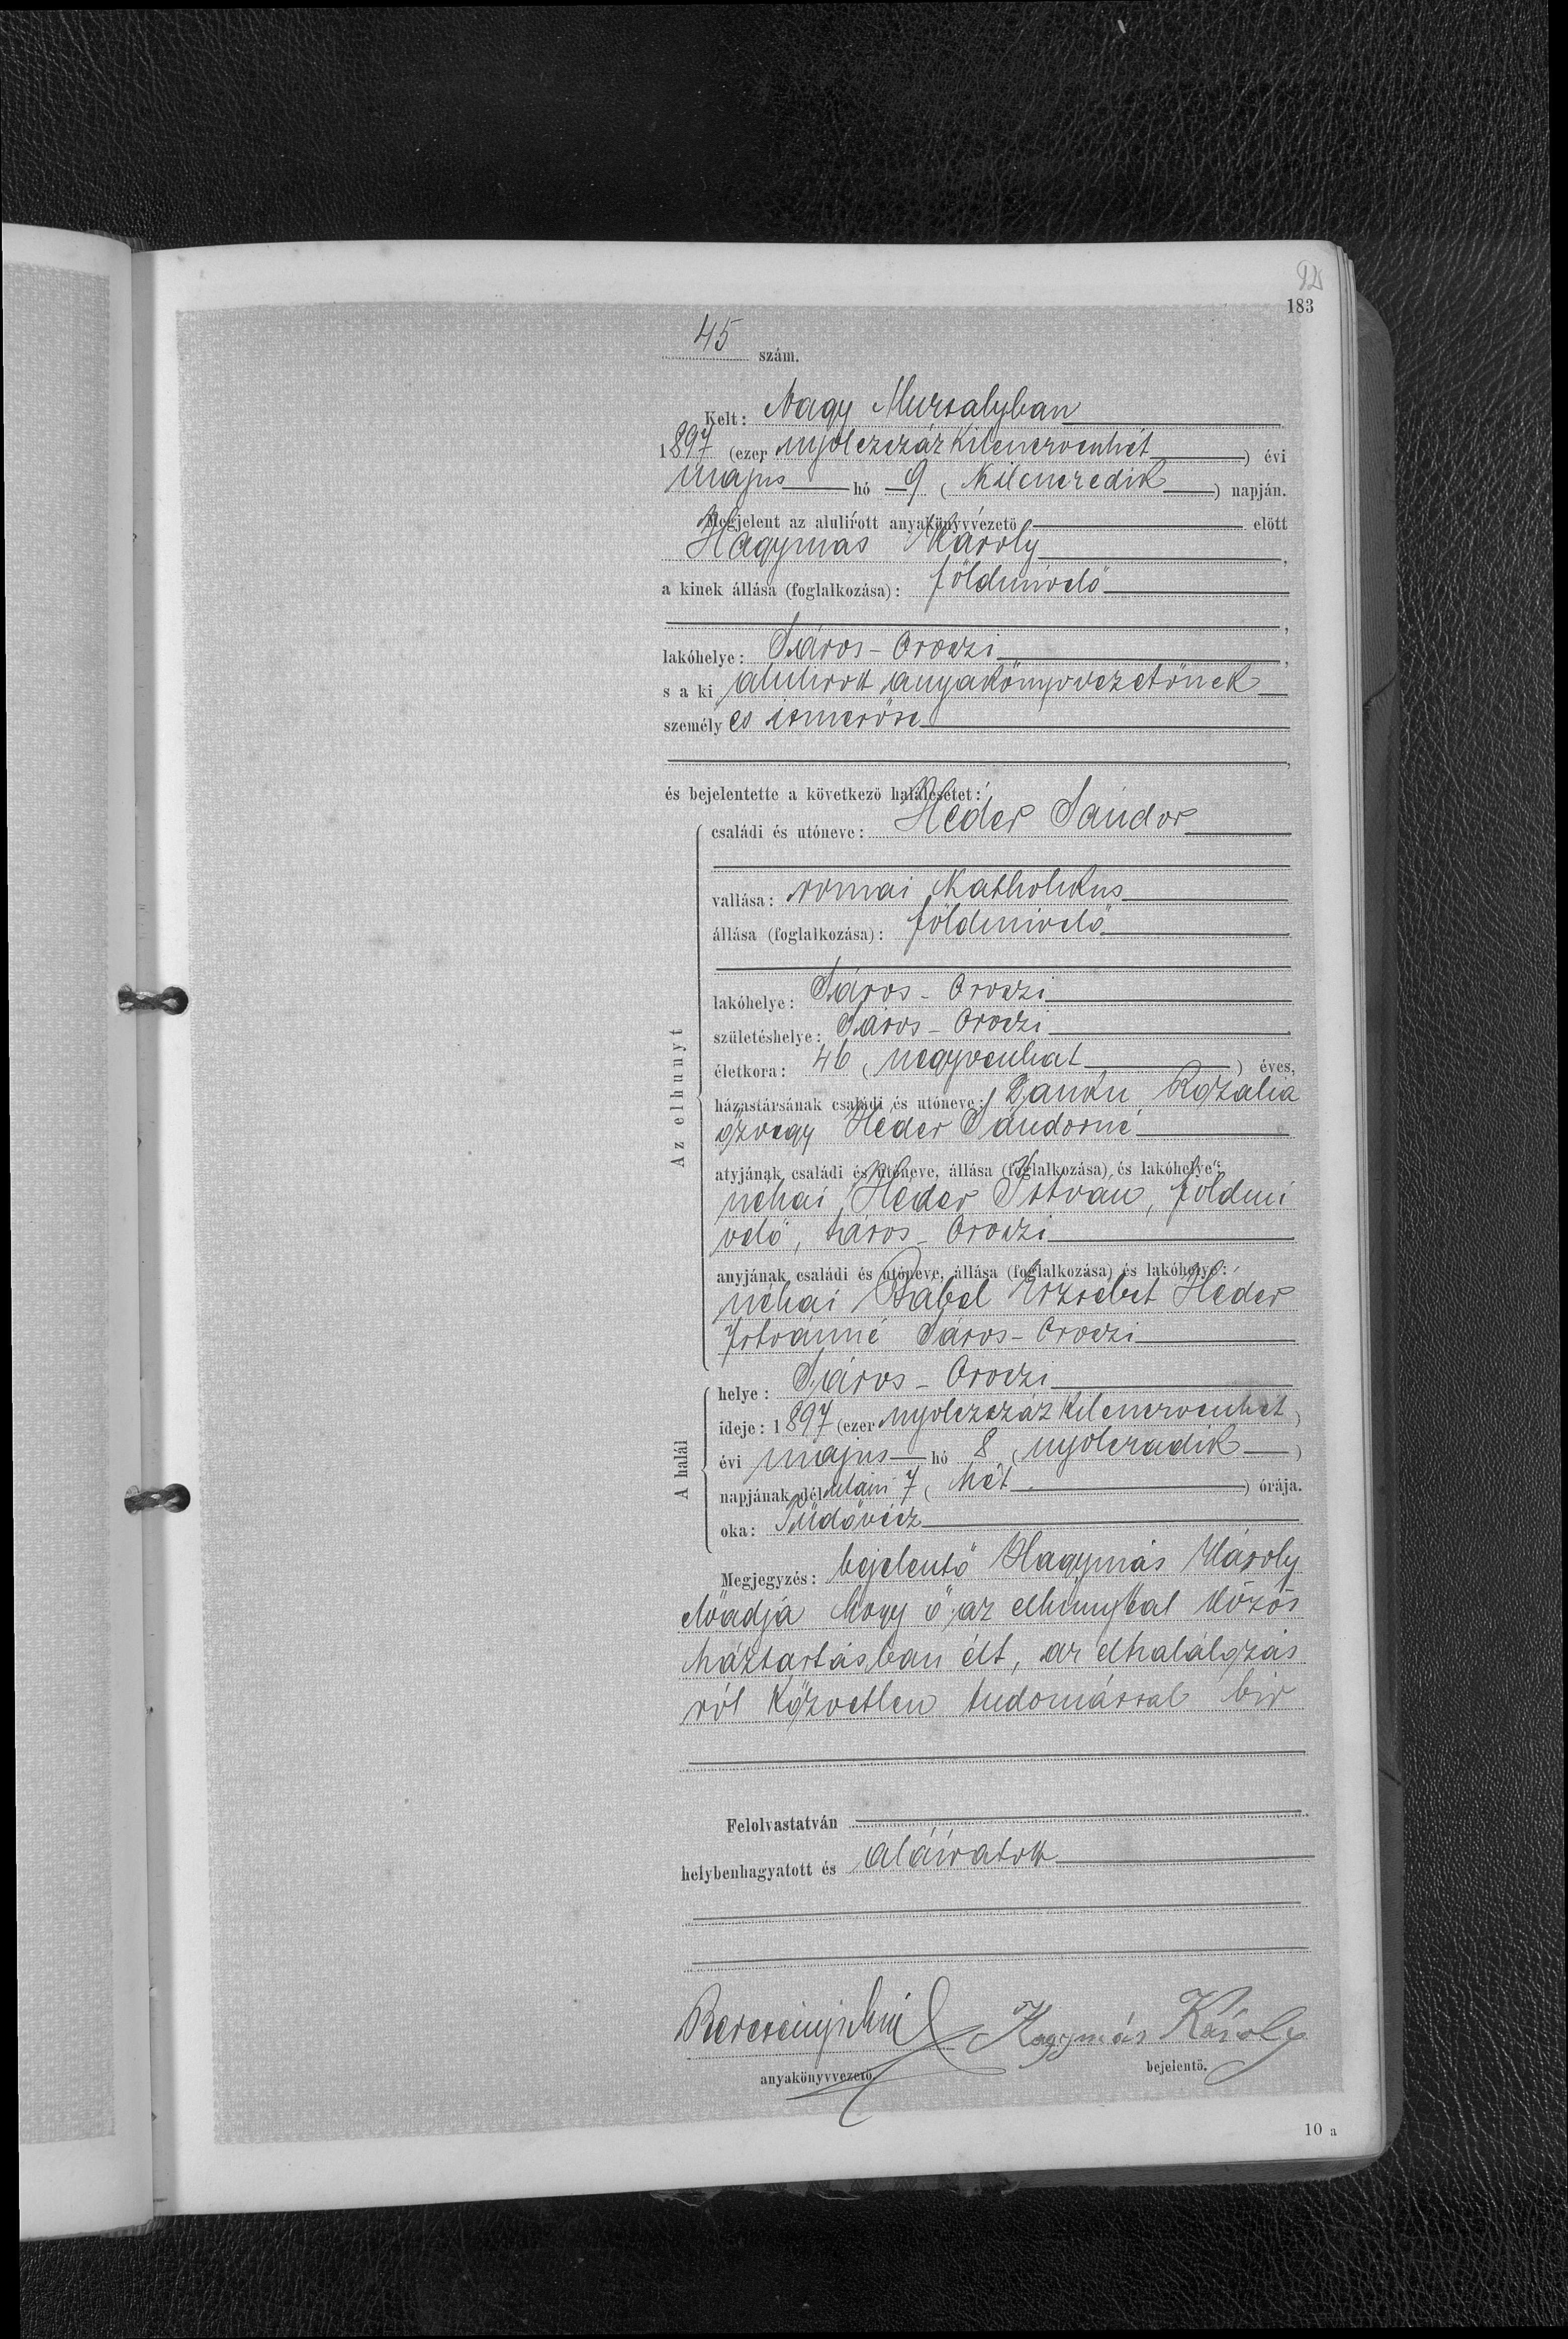 183
45 szám.
Kelt: Nagy Muzsalyban
1897 (ezer nyolczszáz kilenczvenhét) évi
május hó 9 (kilenczedik) napján.
Megjelent az alulírott anyakönyvvezető előtt
Hagymás Károly,
a kinek állása (foglalkozása): földmivelő
,
lakóhelye: Sáros-Oroszi,
s a ki alulirott anyakönyvvezetőnek
személyes ismerőse
,
és bejelentette a következő halálesetet:
Az elhunyt
családi és utóneve: Héder Sándor
vallása: romai katholikus
állása (foglalkozása): földmivelő
lakóhelye: Sáros-Oroszi
születéshelye: Sáros-Oroszi
életkora: 46 (negyvenhat) éves,
házastársának családi és utóneve: Rozalia
özvegy Héder Sándorné
atyjának családi és utóneve, állása (foglalkozása) és lakóhelye:
néhai Héder István, földmi
velő, Sáros-Oroszi
anyjának családi és utóneve, állása (foglalkozása) és lakóhelye:
néhai Erzsebet Héder
Istvánné Sáros-Oroszi
A halál
helye: Sáros-Oroszi
ideje: 1897 (ezer nyolczszáz kilenczvenhét)
évi május hó 8 (nyolczadik)
napjának délutáni 7 (hét) órája.
oka: Tüdővész
Megjegyzés: bejelentő Hagymás Károly
előadja hogy ő az elhunyttal közös
háztartásban élt, az elhalálozás
ról közvetlen tudomással bir
Felolvastatván
helybenhagyatott és aláíratott
Hagymás Károly
anyakönyvvezető.
bejelentő.
10 a